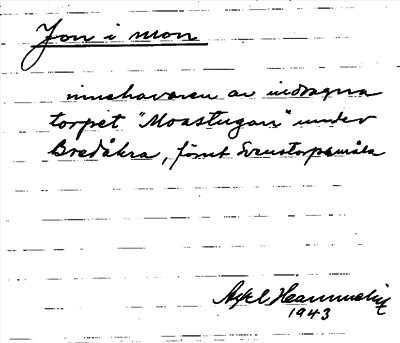 Jon i mon
innehavaren av indragna
torpet "Moastugan" under
Bredåkra, förut Svenstorpamåla
Axel
1943